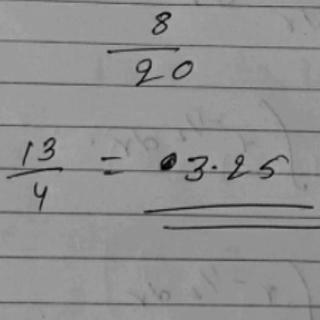 8
20
13/4 = 3.25